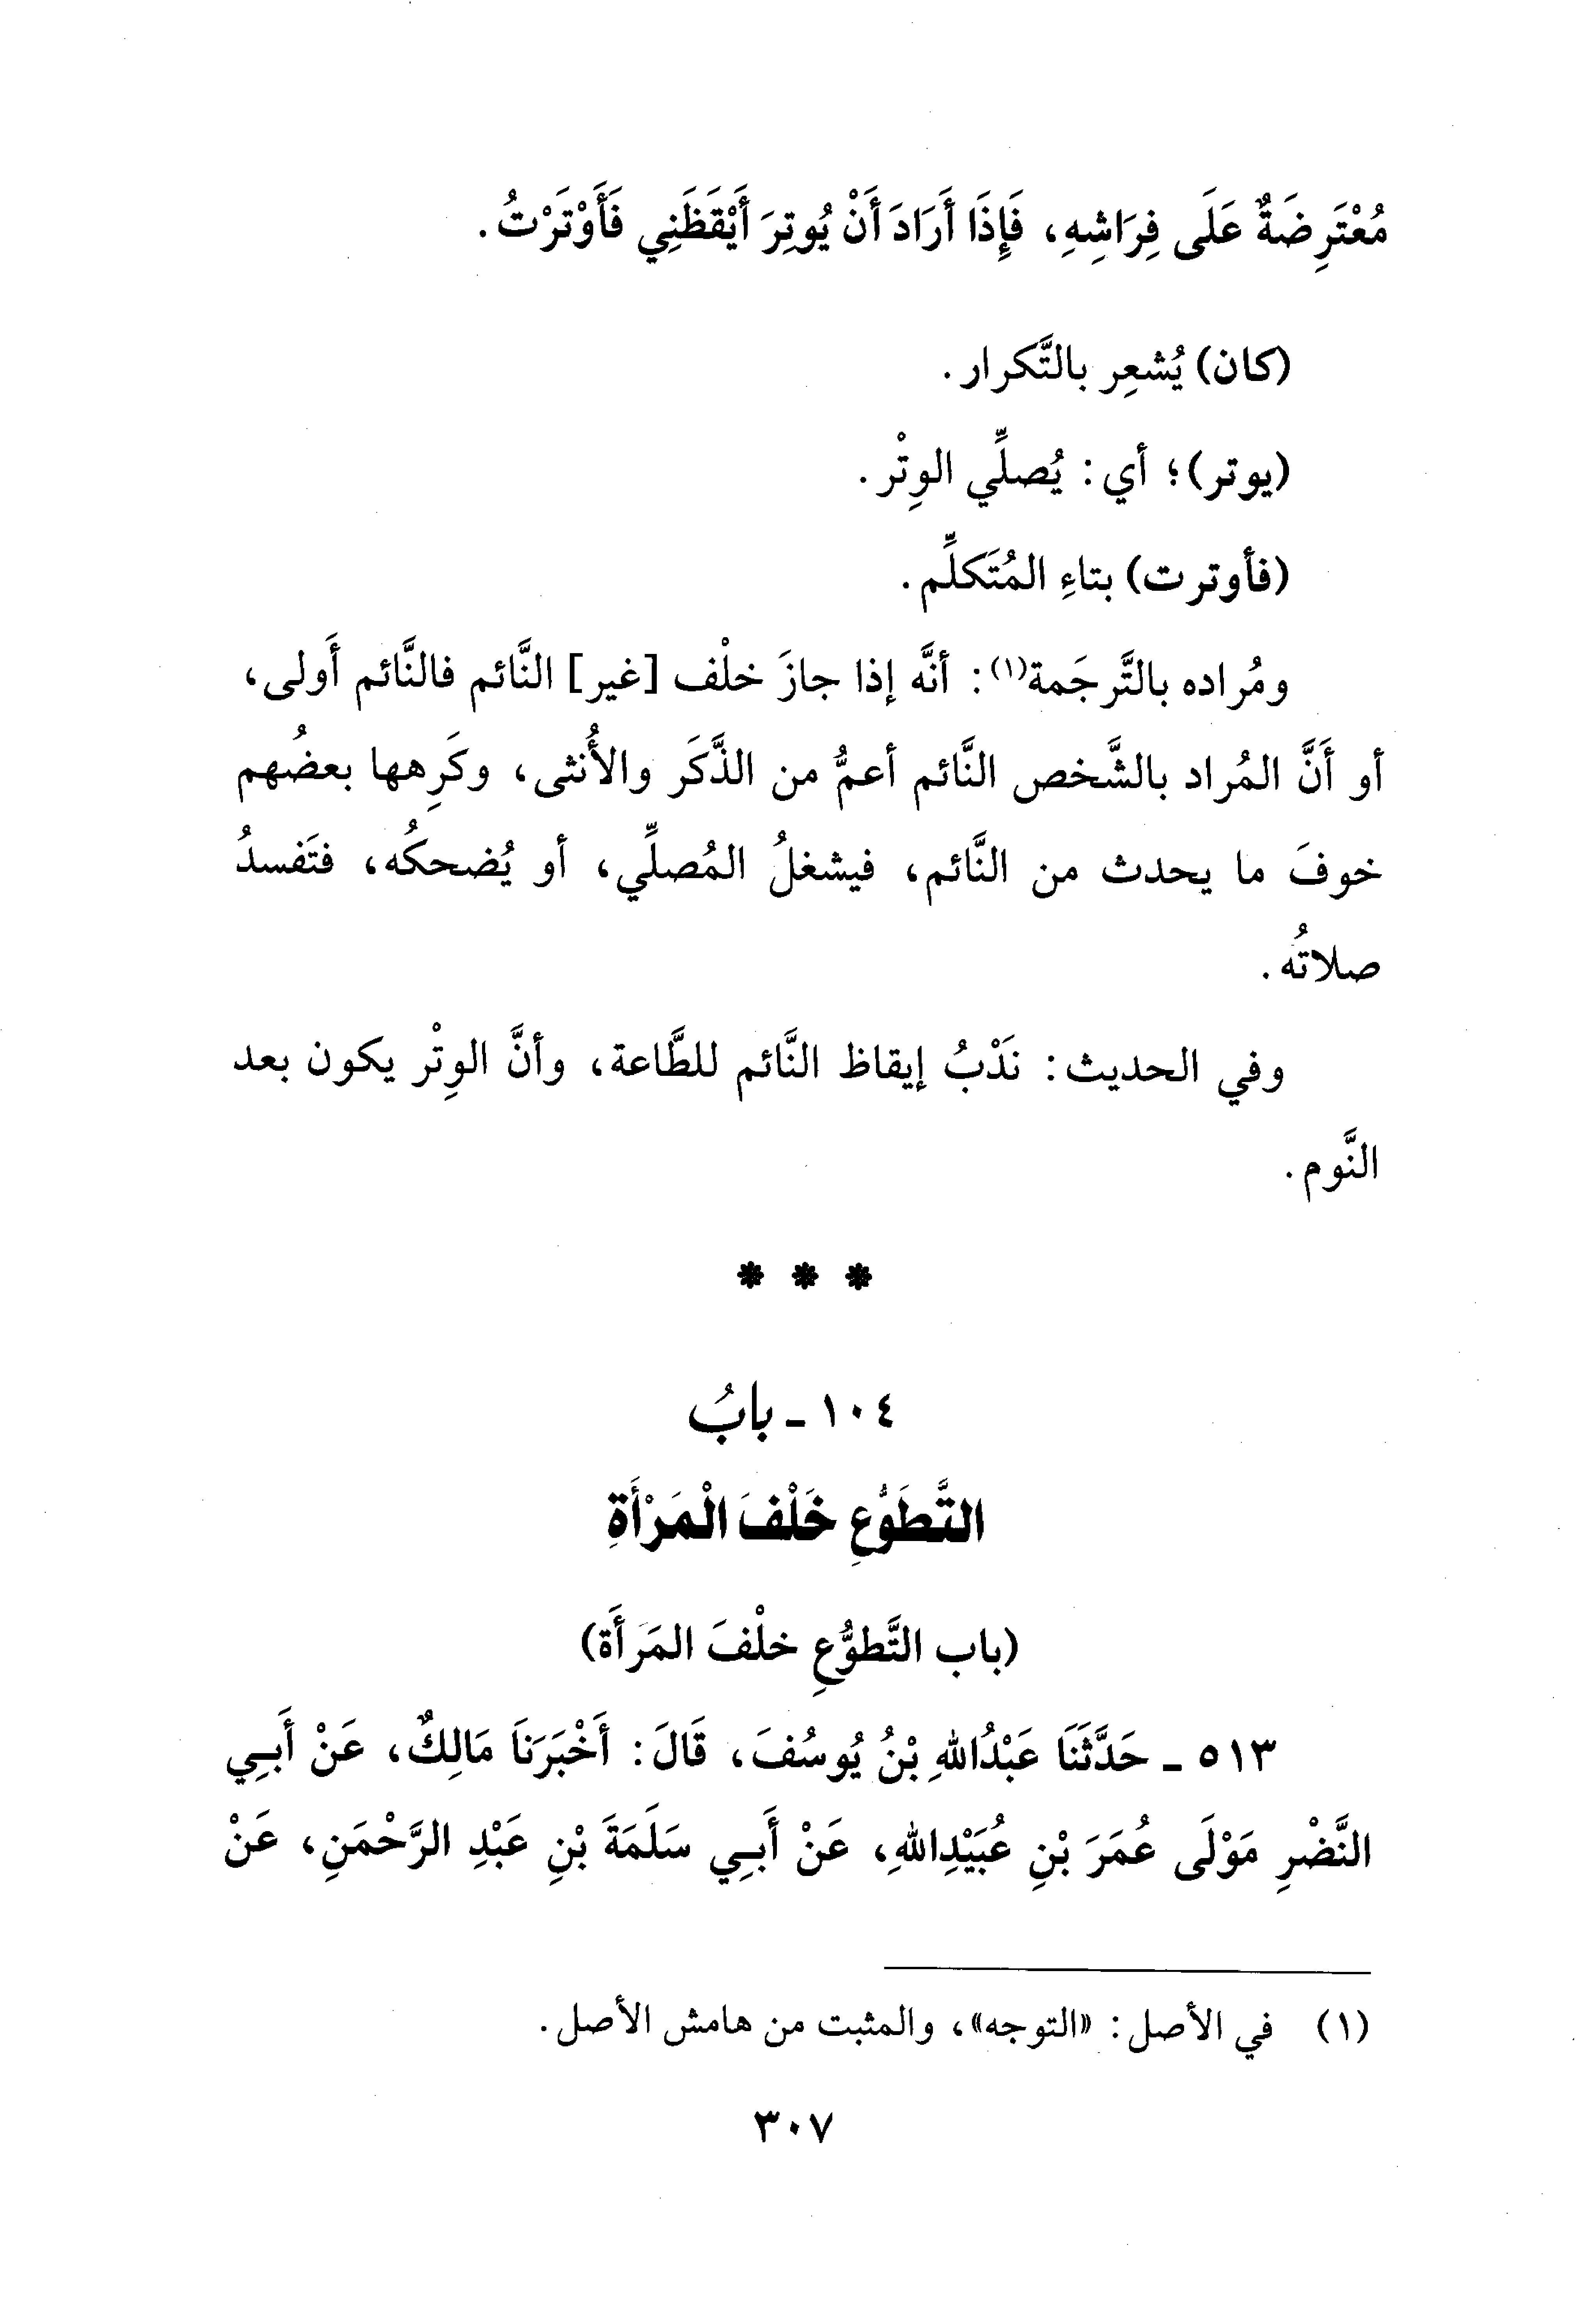 مُعْتَرِضَةٌ عَلَى فِرَاشِهِ، فَإِذَا أَرَادَ أَنْ يُوتِرَ أَيْقَظَنِي فَأَوْتَرْتُ.
(كان) يُشعِر بالتَّكرار.
(يوتر)؛ أي: يُصلِّي الوِتْر.
(فأوترت) بتاءِ المُتَكلِّم.
ومُراده بالتَّرجَمة(١): أنَّه إذا جازَ خلْف [غير] النَّائم فالنَّائم أَولى،
أو أَنَّ المُراد بالشَّخص النَّائم أعمُّ من الذَّكَر والأُنثى، وكَرِهها بعضُهم
خوفَ ما يحدث من النَّائم، فيشغلُ المُصلِّي، أو يُضحكُه، فتَفسدُ
صلاتُه.
وفي الحديث: نَدْبُ إيقاظ النَّائم للطَّاعة، وأنَّ الوِتْر يكون بعد
النَّوم.
* * *
١٠٤ - بابُ
التَّطَوُّعِ خَلْفَ الْمَرْأَةِ
(باب التَّطوُّعِ خلْفَ المَرأَة)
٥١٣ - حَدَّثَنَا عَبْدُاللهِ بْنُ يُوسُفَ، قَالَ: أَخْبَرَنَا مَالِكٌ، عَنْ أَبِي
النَّضْرِ مَوْلَى عُمَرَ بْنِ عُبَيْدِاللهِ، عَنْ أَبِي سَلَمَةَ بْنِ عَبْدِ الرَّحْمَنِ، عَنْ
(١) في الأصل: «التوجه»، والمثبت من هامش الأصل.
٣٠٧